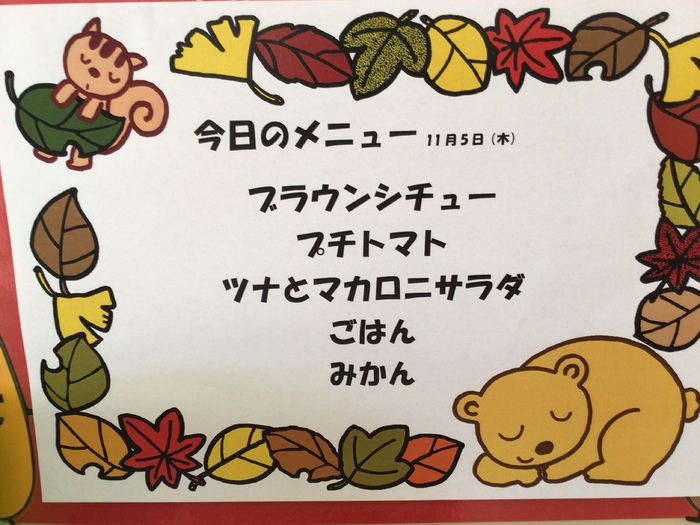 今日のメニュー 11月5日（木）
ブラウンシチュー
プチトマト
ツナとマカロニサラダ
ごはん
みかん